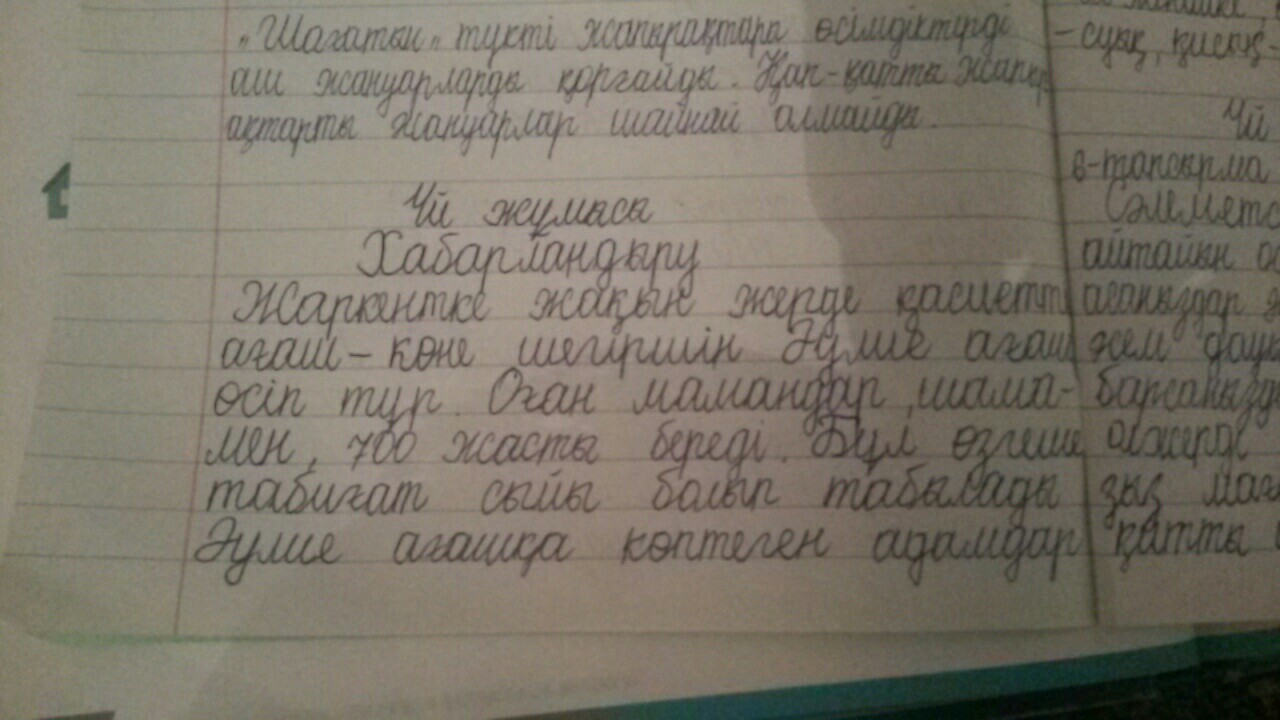 „Шағатын„ түкті жапырақтары өсімдіктерді
аш жануарларды қорғайды. Қап-қатты жапыр
ақтарты жануарлар шайнай алмайды.
Үй жұмысы
Хабарландыру
Жаркентке жақын жерде қасиетті
ағаш – көне шегіршін Әулие ағаш
өсіп тұр. Оған мамандар, шама-
мен, 700 жасты береді. Бұл өзгеше
табиғат сыйы болып табылады
Әулие ағашқа көптеген адамдар
- суық, қысқ-
Үй
6-тапсырма
Сәлеметс
айтайын
асаңыздар
жем дауы
барсаңызд
әлжерді
зың маға
қатты